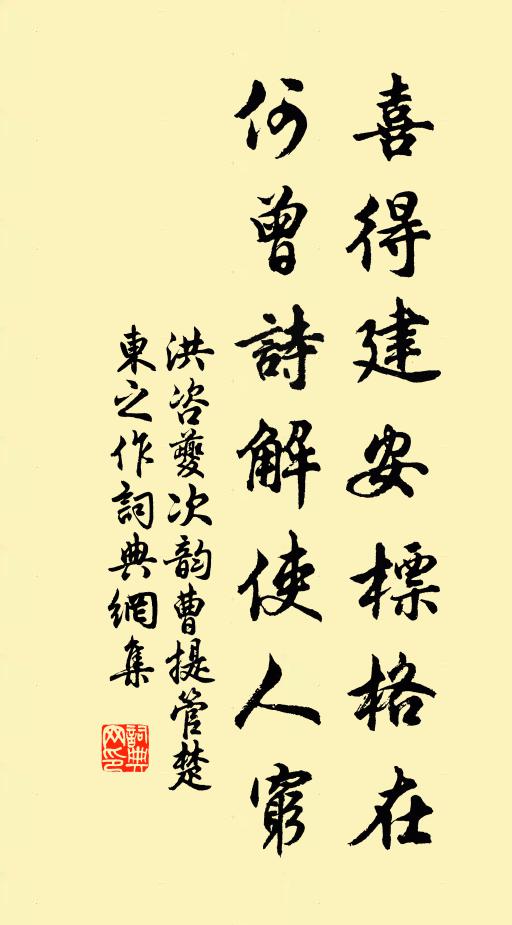 喜得建安標格在
何曾詩解使人窮
洪咨夔次韵曹提管楚
東之作詞典網集
詞典
网印